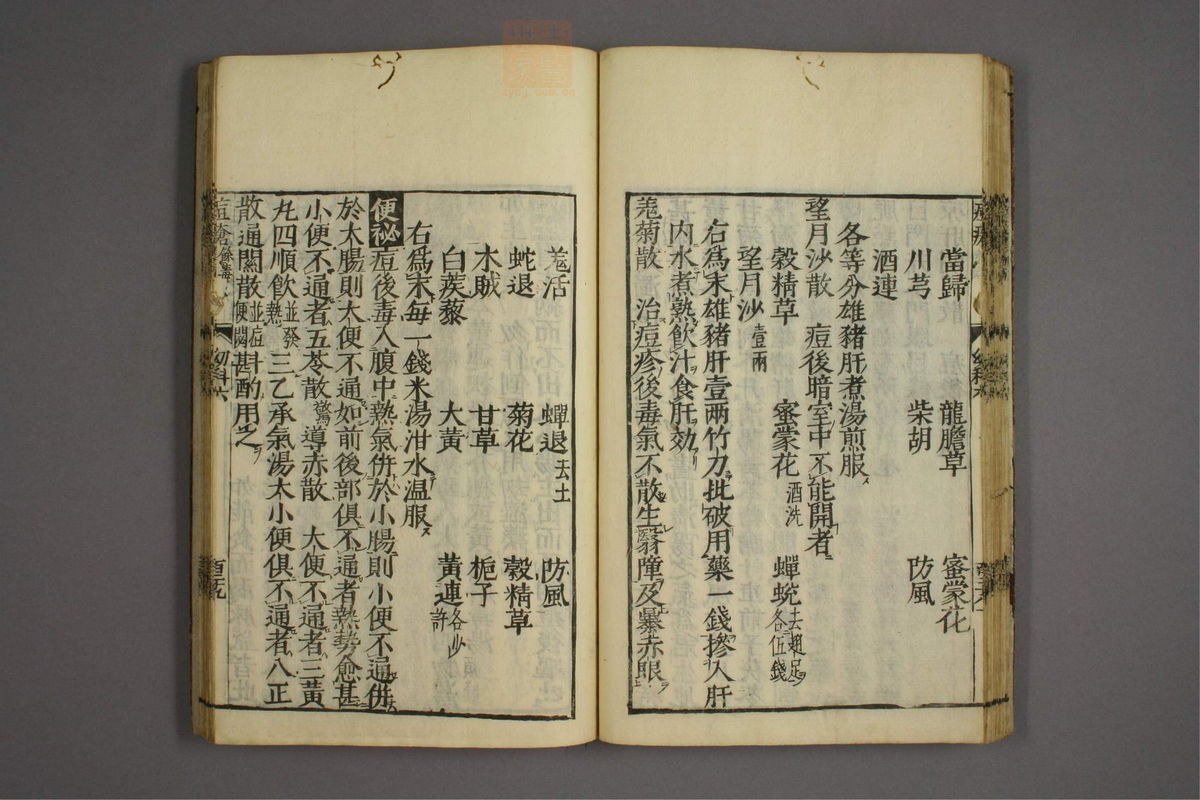 當歸　龍膽草　蜜蒙花
川芎　柴胡　防風
酒連
各等分雄豬肝煮湯煎服
望月沙散　痘後暗室中不能開者
穀精草　蜜蒙花酒洗　蟬蛻去翅足各伍錢
望月沙壹兩
右為末雄豬肝壹兩竹刀批破用藥一錢摻入肝
內水煮熟飲汁食肝効
羗菊散　治痘疹後毒氣不散生翳障及暴赤眼
羗活　蟬退去土　防風
蛇退　菊花　穀精草
木賊　甘草　梔子
白蒺藜　大黃　黃連各少許
右為末每一錢米湯泔水温服
便祕　痘後毒入腹中熱氣併於小腸則小便不通併
於大腸則大便不通如前後部俱不通者熱勢愈甚
小便不通者五苓散驚導赤散　大便不通者三黃
丸四順飲並發熱三乙承氣湯大小便俱不通者八正
散通關散並痘便閉斟酌用之
幼科六